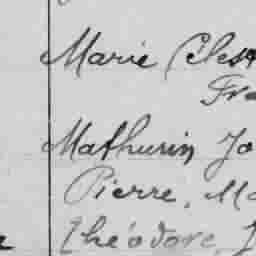 Marie Célest
Fra
Mathurin Jo
Pierre, Ma
Théodore, J